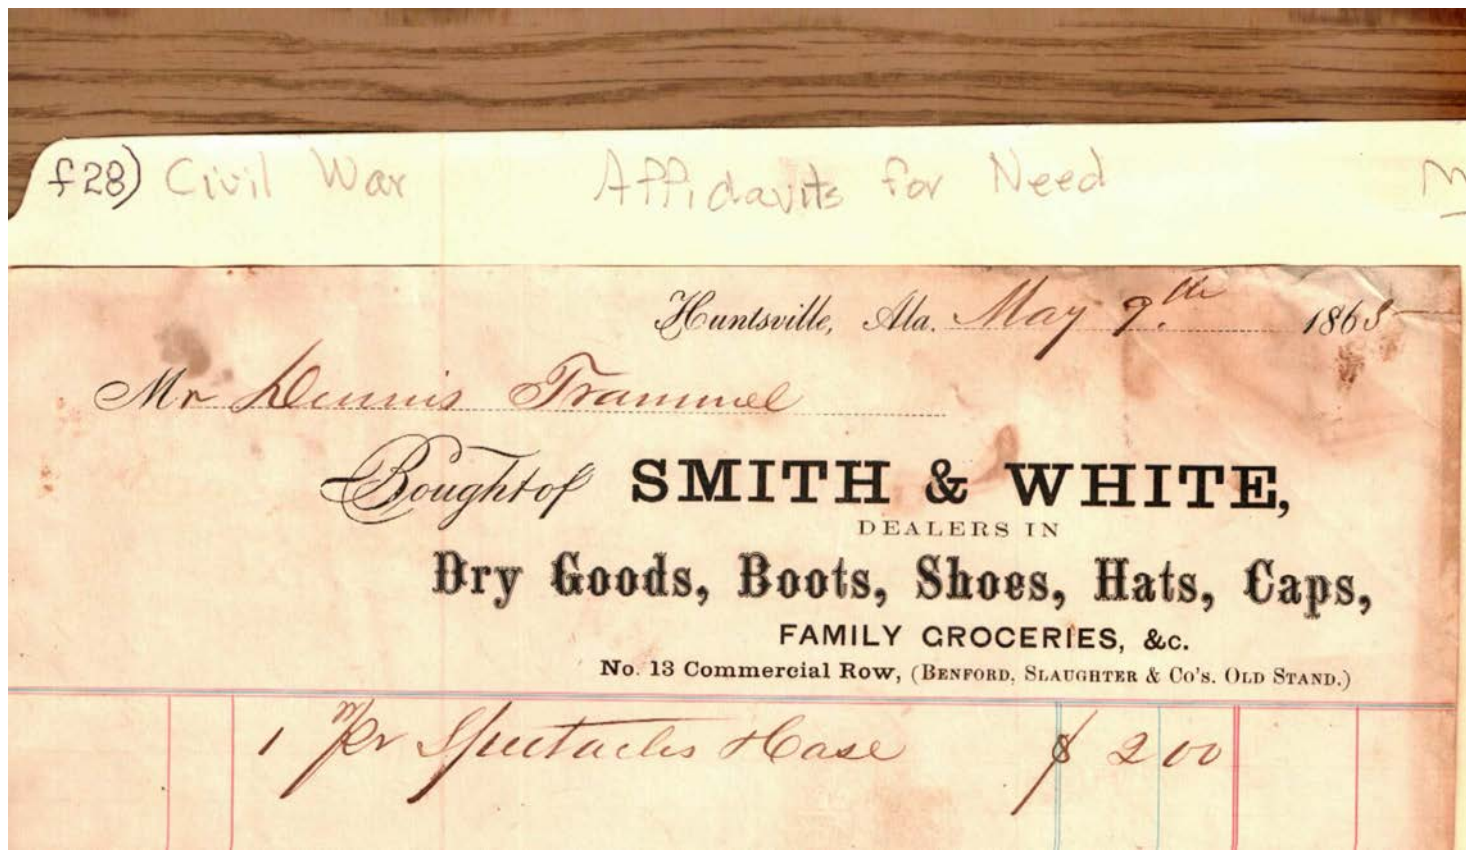 f28) Civil War Affidavits for Need
Huntsville, Ala. May 9th 1865
Mr Dennis Trammel
Bought of SMITH & WHITE,
DEALERS IN
Dry Goods, Boots, Shoes, Hats, Caps,
FAMILY GROCERIES, &c.
No. 13 Commercial Row, (BENFORD, SLAUGHTER & CO'S. OLD STAND.)
1 pr Spectacles & Case $ 2 00